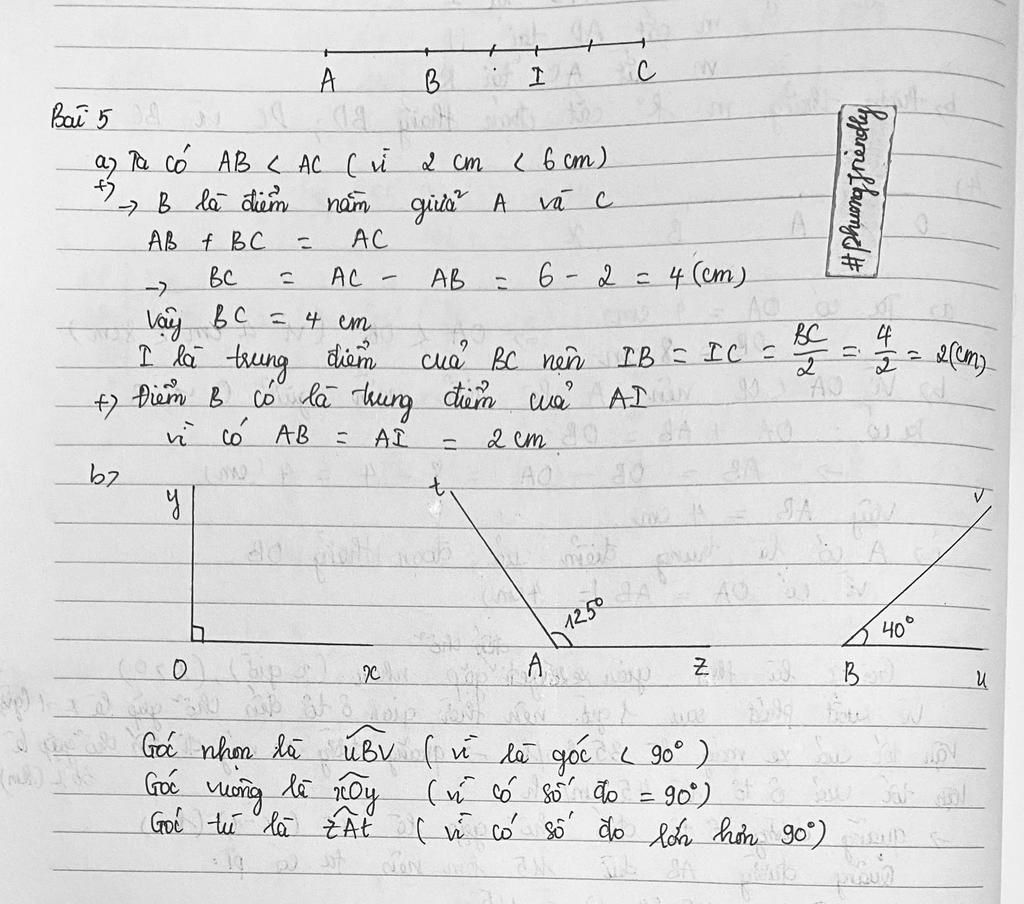 A B I C
Bài 5
#phuongfriendly
a) Ta có AB < AC (vì 2 cm < 6 cm)
+) → B là điểm nằm giữa A và C
AB + BC = AC
→ BC = AC - AB = 6 - 2 = 4 (cm)
Vậy BC = 4 cm
I là trung điểm của BC nên IB = IC = BC/2 = 4/2 = 2 (cm)
+) Điểm B có là trung điểm của AI
vì có AB = AI = 2 cm
b)
y t v
125° 40°
O x A z B u
Góc nhọn là uBv (vì là góc < 90°)
Góc vuông là xOy (vì có số đo = 90°)
Góc tù là zAt (vì có số đo lớn hơn 90°)